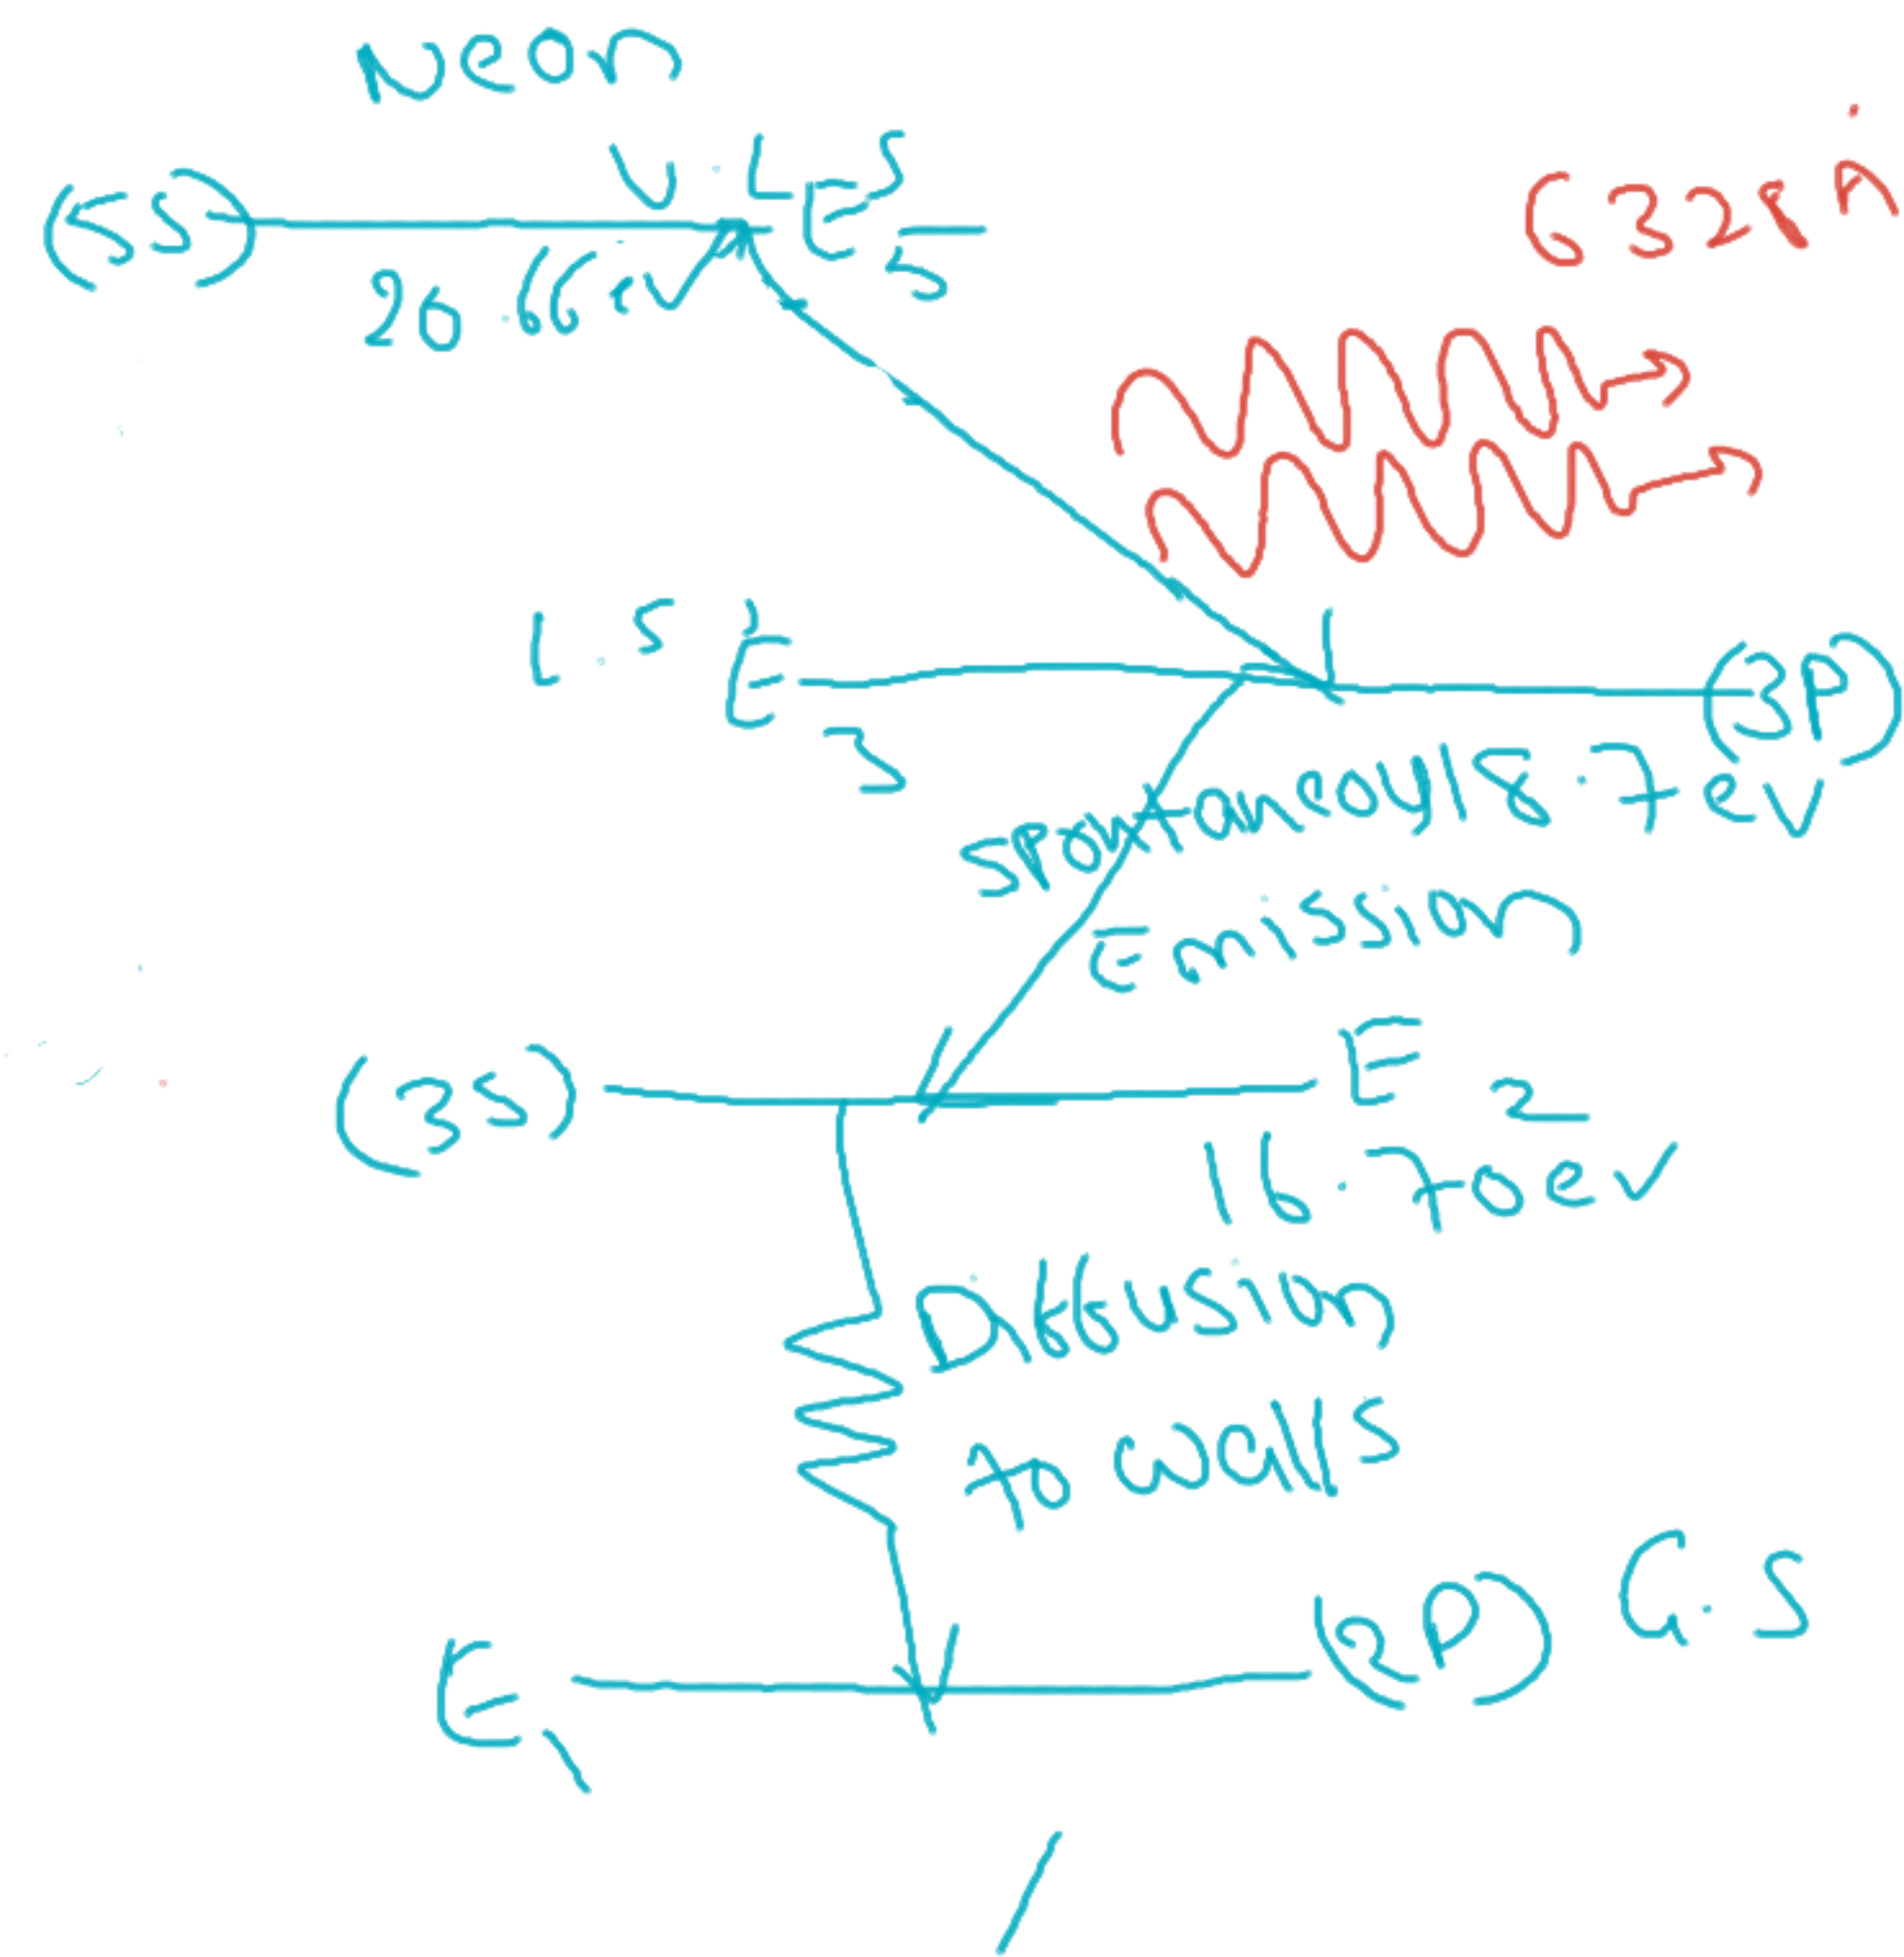 Neon
(5S) U.L E5 S
20.66ev
6328A
L.S E3 (3P)
spontaneou 18.7ev
Emission
(3S) E2
16.70ev
Diffusion
to walls
E1 (2P) G.S